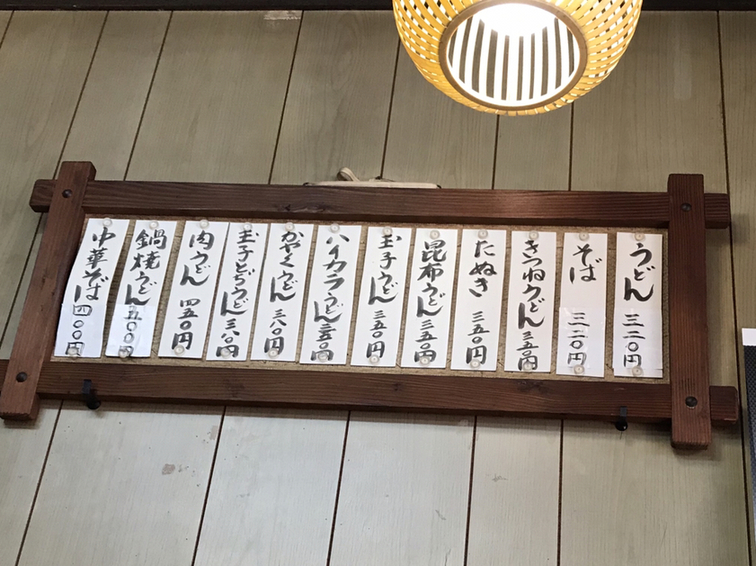 うどん 三二〇円
そば 三二〇円
きつねうどん 三五〇円
たぬき 三五〇円
昆布うどん 三五〇円
玉子うどん 三五〇円
ハイカラうどん 三五〇円
かやくうどん 三八〇円
玉子とじうどん 三八〇円
肉うどん 四五〇円
鍋焼うどん 五〇〇円
中華そば 四〇〇円